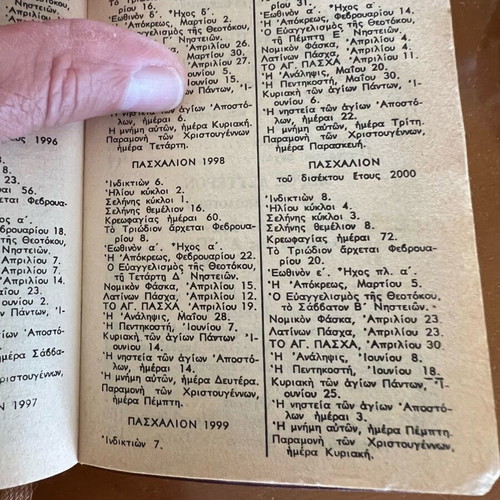 ος 1996
3.
8.
23.
αι 56.
εται Φεβρουα-
α΄.
ρουαρίου 18.
τῆς Θεοτόκου,
Νηστειῶν.
Ἀπριλίου 7.
Ἀπριλίου 7.
Ἀπριλίου 14.
αΐου 23.
νίου 2.
Πάντων, Ἰ-
Ἀποστό-
ἡμέρα Σάββα-
ριστουγέννων,
Ν 1997
Τὸ
ρίου 16.
Ἑωθινὸν δ΄. Ἦχος δ΄.
Ἀπόκρεως, Μαρτίου 2.
Εὐαγγελισμὸς τῆς Θεοτόκου,
Νηστειῶν.
Ἀπριλίου 26.
Μαρτίου 30.
Ἀπριλίου 27.
ίου 5.
ίου 15.
Πάντων, Ἰ-
νηστεία τῶν ἁγίων Ἀποστό-
λων, ἡμέραι 6.
Ἡ μνήμη αὐτῶν, ἡμέρα Κυριακή.
Παραμονὴ τῶν Χριστουγέννων
ἡμέρα Τετάρτη.
ΠΑΣΧΑΛΙΟΝ 1998
Ἰνδικτιὼν 6.
Ἡλίου κύκλοι 2.
Σελήνης κύκλοι 1.
Σελήνης θεμέλιον 16.
Κρεωφαγίας ἡμέραι 60.
Τὸ Τριώδιον ἄρχεται Φεβρουα-
ρίου 8.
Ἑωθινὸν α΄. Ἦχος α΄.
Ἡ Ἀπόκρεως, Φεβρουαρίου 22.
Ὁ Εὐαγγελισμὸς τῆς Θεοτόκου,
τῇ Τετάρτῃ Δ΄ Νηστειῶν.
Νομικὸν Φάσκα, Ἀπριλίου 15.
Λατίνων Πάσχα, Ἀπριλίου 12.
ΤΟ ΑΓ. ΠΑΣΧΑ, Ἀπριλίου 19.
Ἡ Ἀνάληψις, Μαΐου 28.
Ἡ Πεντηκοστή, Ἰουνίου 7.
Κυριακὴ τῶν ἁγίων Πάντων Ἰ-
ουνίου 14.
Ἡ νηστεία τῶν ἁγίων Ἀποστό-
λων, ἡμέραι 14.
Ἡ μνήμη αὐτῶν, ἡμέρα Δευτέρα.
Παραμονὴ τῶν Χριστουγέννων,
ἡμέρα Πέμπτη.
ΠΑΣΧΑΛΙΟΝ 1999
Ἰνδικτιὼν 7.
ρίου 31.
Ἑωθινὸν α΄. Ἦχος α΄.
Ἡ Ἀπόκρεως, Φεβρουαρίου 14.
Ὁ Εὐαγγελισμὸς τῆς Θεοτόκου,
τῇ Πέμπτῃ Ε΄ Νηστειῶν.
Νομικὸν Φάσκα, Ἀπριλίου 4.
Λατίνων Πάσχα, Ἀπριλίου 4.
ΤΟ ΑΓ. ΠΑΣΧΑ Ἀπριλίου 11.
Ἡ Ἀνάληψις, Μαΐου 20.
Ἡ Πεντηκοστή, Μαΐου 30.
Κυριακὴ τῶν ἁγίων Πάντων, Ἰ-
ουνίου 6.
Ἡ νηστεία τῶν ἁγίων Ἀποστό-
λων, ἡμέραι 22.
Ἡ μνήμη αὐτῶν, ἡμέρα Τρίτη.
Παραμονὴ τῶν Χριστουγέννων,
ἡμέρα Παρασκευή.
ΠΑΣΧΑΛΙΟΝ
τοῦ δισέκτου ἔτους 2000
Ἰνδικτιὼν 8.
Ἡλίου κύκλοι 4.
Σελήνης κύκλοι 3.
Σελήνης θεμέλιον 8.
Κρεωφαγίας ἡμέραι 72.
Τὸ Τριώδιον ἄρχεται Φεβρουα-
ρίου 20.
Ἑωθινὸν ε΄. Ἦχος πλ. α΄.
Ἡ Ἀπόκρεως, Μαρτίου 5.
Ὁ Εὐαγγελισμὸς τῆς Θεοτόκου,
τὸ Σάββατον Β΄ Νηστειῶν.
Νομικὸν Φάσκα, Ἀπριλίου 23.
Λατίνων Πάσχα, Ἀπριλίου 23.
ΤΟ ΑΓ. ΠΑΣΧΑ, Ἀπριλίου 30.
Ἡ Ἀνάληψις, Ἰουνίου 8.
Ἡ Πεντηκοστή, Ἰουνίου 18.
Κυριακὴ τῶν ἁγίων Πάντων, Ἰ-
ουνίου 25.
Ἡ νηστεία τῶν ἁγίων Ἀποστό-
λων, ἡμέραι 3.
Ἡ μνήμη αὐτῶν, ἡμέρα Πέμπτη.
Παραμονὴ τῶν Χριστουγέννων,
ἡμέρα Κυριακή.